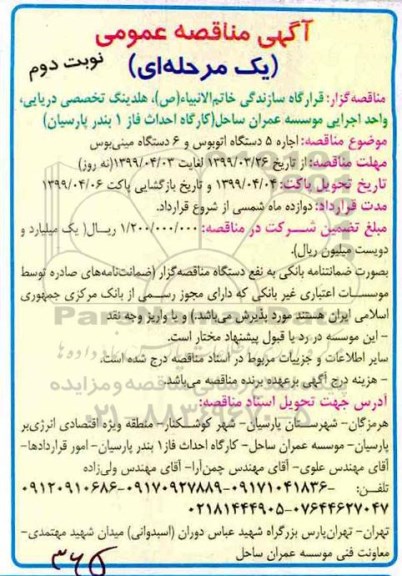 آگهی مناقصه عمومی
(یک مرحله‌ای)
نوبت دوم
مناقصه‌گزار: قرارگاه سازندگی خاتم‌الانبیاء(ص)، هلدینگ تخصصی دریایی،
واحد اجرایی موسسه عمران ساحل(کارگاه احداث فاز ۱ بندر پارسیان)
موضوع مناقصه: اجاره ۵ دستگاه اتوبوس و ۶ دستگاه مینی‌بوس
مهلت مناقصه: از تاریخ ۱۳۹۹/۰۳/۲۶ لغایت ۱۳۹۹/۰۴/۰۳(نه روز)
تاریخ تحویل پاکت: ۱۳۹۹/۰۴/۰۴ و تاریخ بازگشایی پاکت ۱۳۹۹/۰۴/۰۶
مدت قرارداد: دوازده ماه شمسی از شروع قرارداد.
مبلغ تضمین شرکت در مناقصه: ۱/۲۰۰/۰۰۰/۰۰۰ ریال( یک میلیارد و
دویست میلیون ریال).
بصورت ضمانتنامه بانکی به نفع دستگاه مناقصه‌گزار (ضمانت‌نامه‌های صادره توسط
موسسات اعتباری غیر بانکی که دارای مجوز رسمی از بانک مرکزی جمهوری
اسلامی ایران هستند مورد پذیرش می‌باشد.) و یا واریز وجه نقد
- این موسسه در رد یا قبول پیشنهاد مختار است.
سایر اطلاعات و جزییات مربوط در اسناد مناقصه درج شده است.
- هزینه درج آگهی برعهده برنده مناقصه می‌باشد.
آدرس جهت تحویل اسناد مناقصه:
هرمزگان- شهرستان پارسیان- شهر کوشکنار- منطقه ویژه اقتصادی انرژی‌بر
پارسیان- موسسه عمران ساحل- کارگاه احداث فاز۱ بندر پارسیان- امور قراردادها-
آقای مهندس علوی- آقای مهندس چمن‌آرا- آقای مهندس ولی‌زاده
تلفن: ۰۹۱۷۱۰۴۱۸۳۶-۰۹۱۷۰۹۲۷۸۸۹-۰۹۱۲۰۹۱۰۶۸۶-
۰۷۶۴۴۶۲۷۰۴۷-۰۲۱۸۱۴۴۴۹۰۵
تهران- تهران‌پارس بزرگراه شهید عباس دوران (اسبدوانی) میدان شهید مهتمدی-
معاونت فنی موسسه عمران ساحل
۰۲۱-۸۸۳۴۹۶۷۰-۵